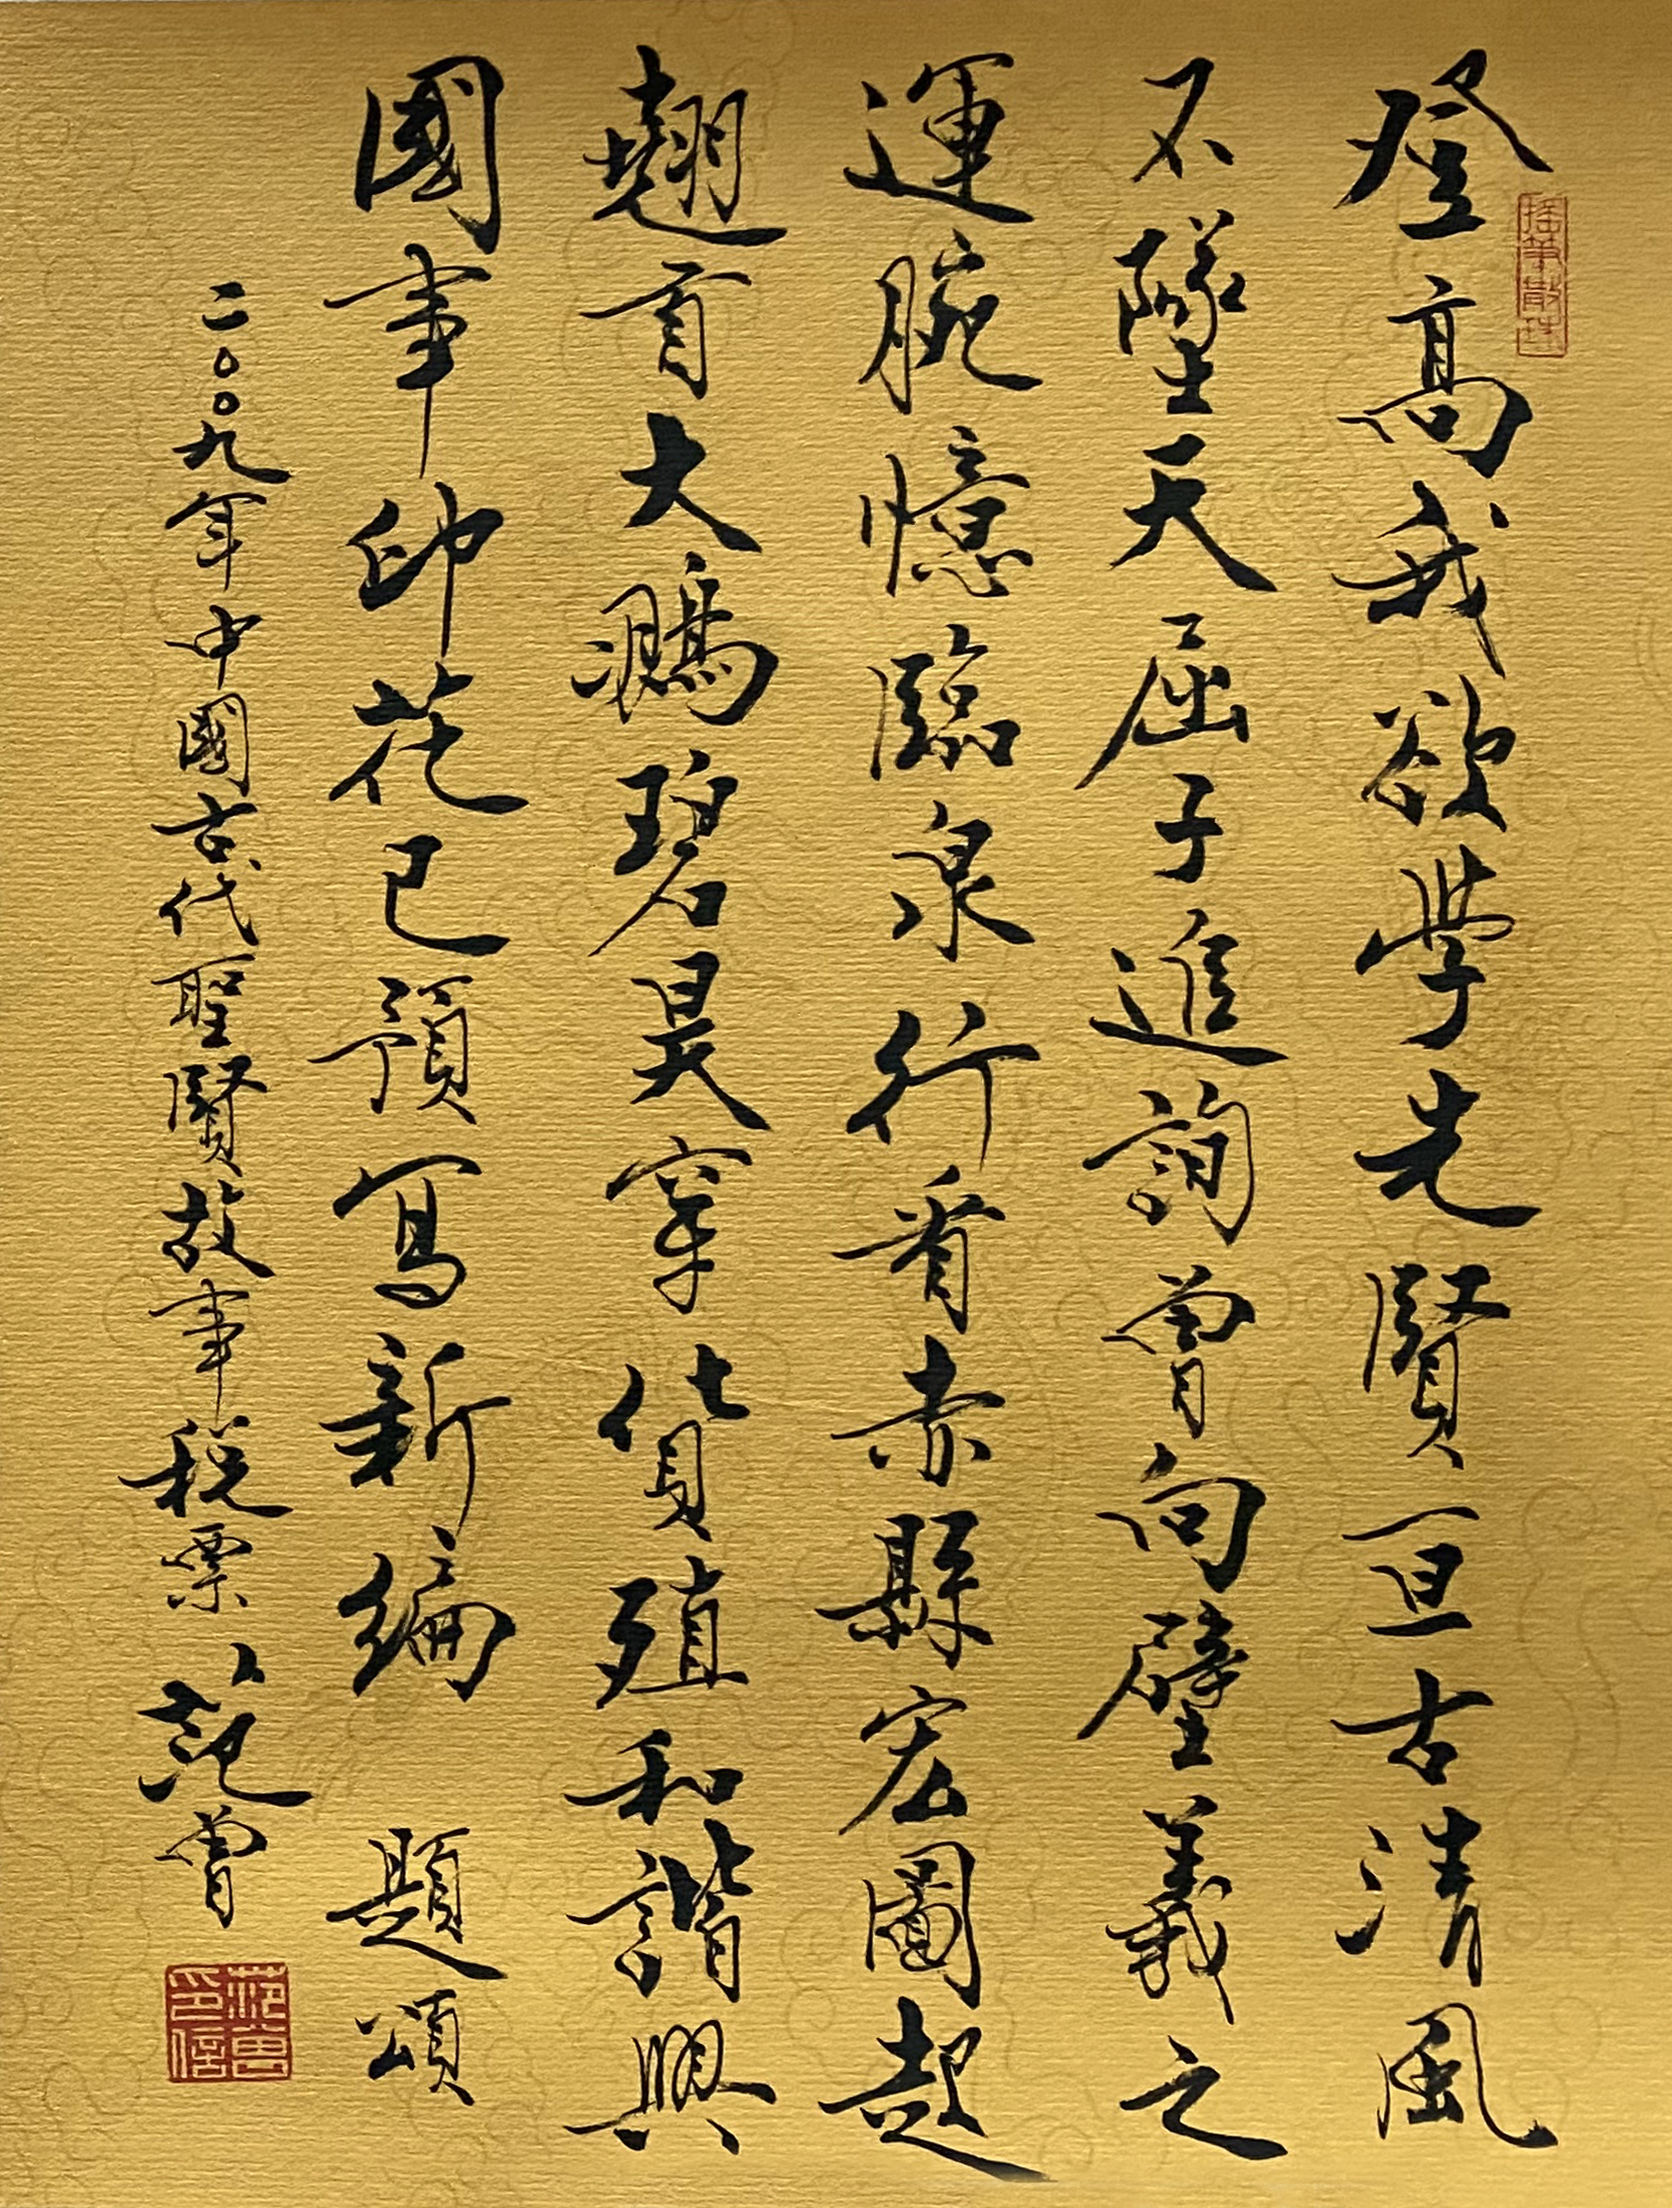 登高我欲學先賢亘古清風
不墜天屈子進詢曾向壁羲之
運腕憶臨泉行看赤縣宏圖起
翹首大鵬碧昊穿貨殖和諧興
國事印花已預寫新編 題頌
二〇〇九年中國古代聖賢故事税票 范曾